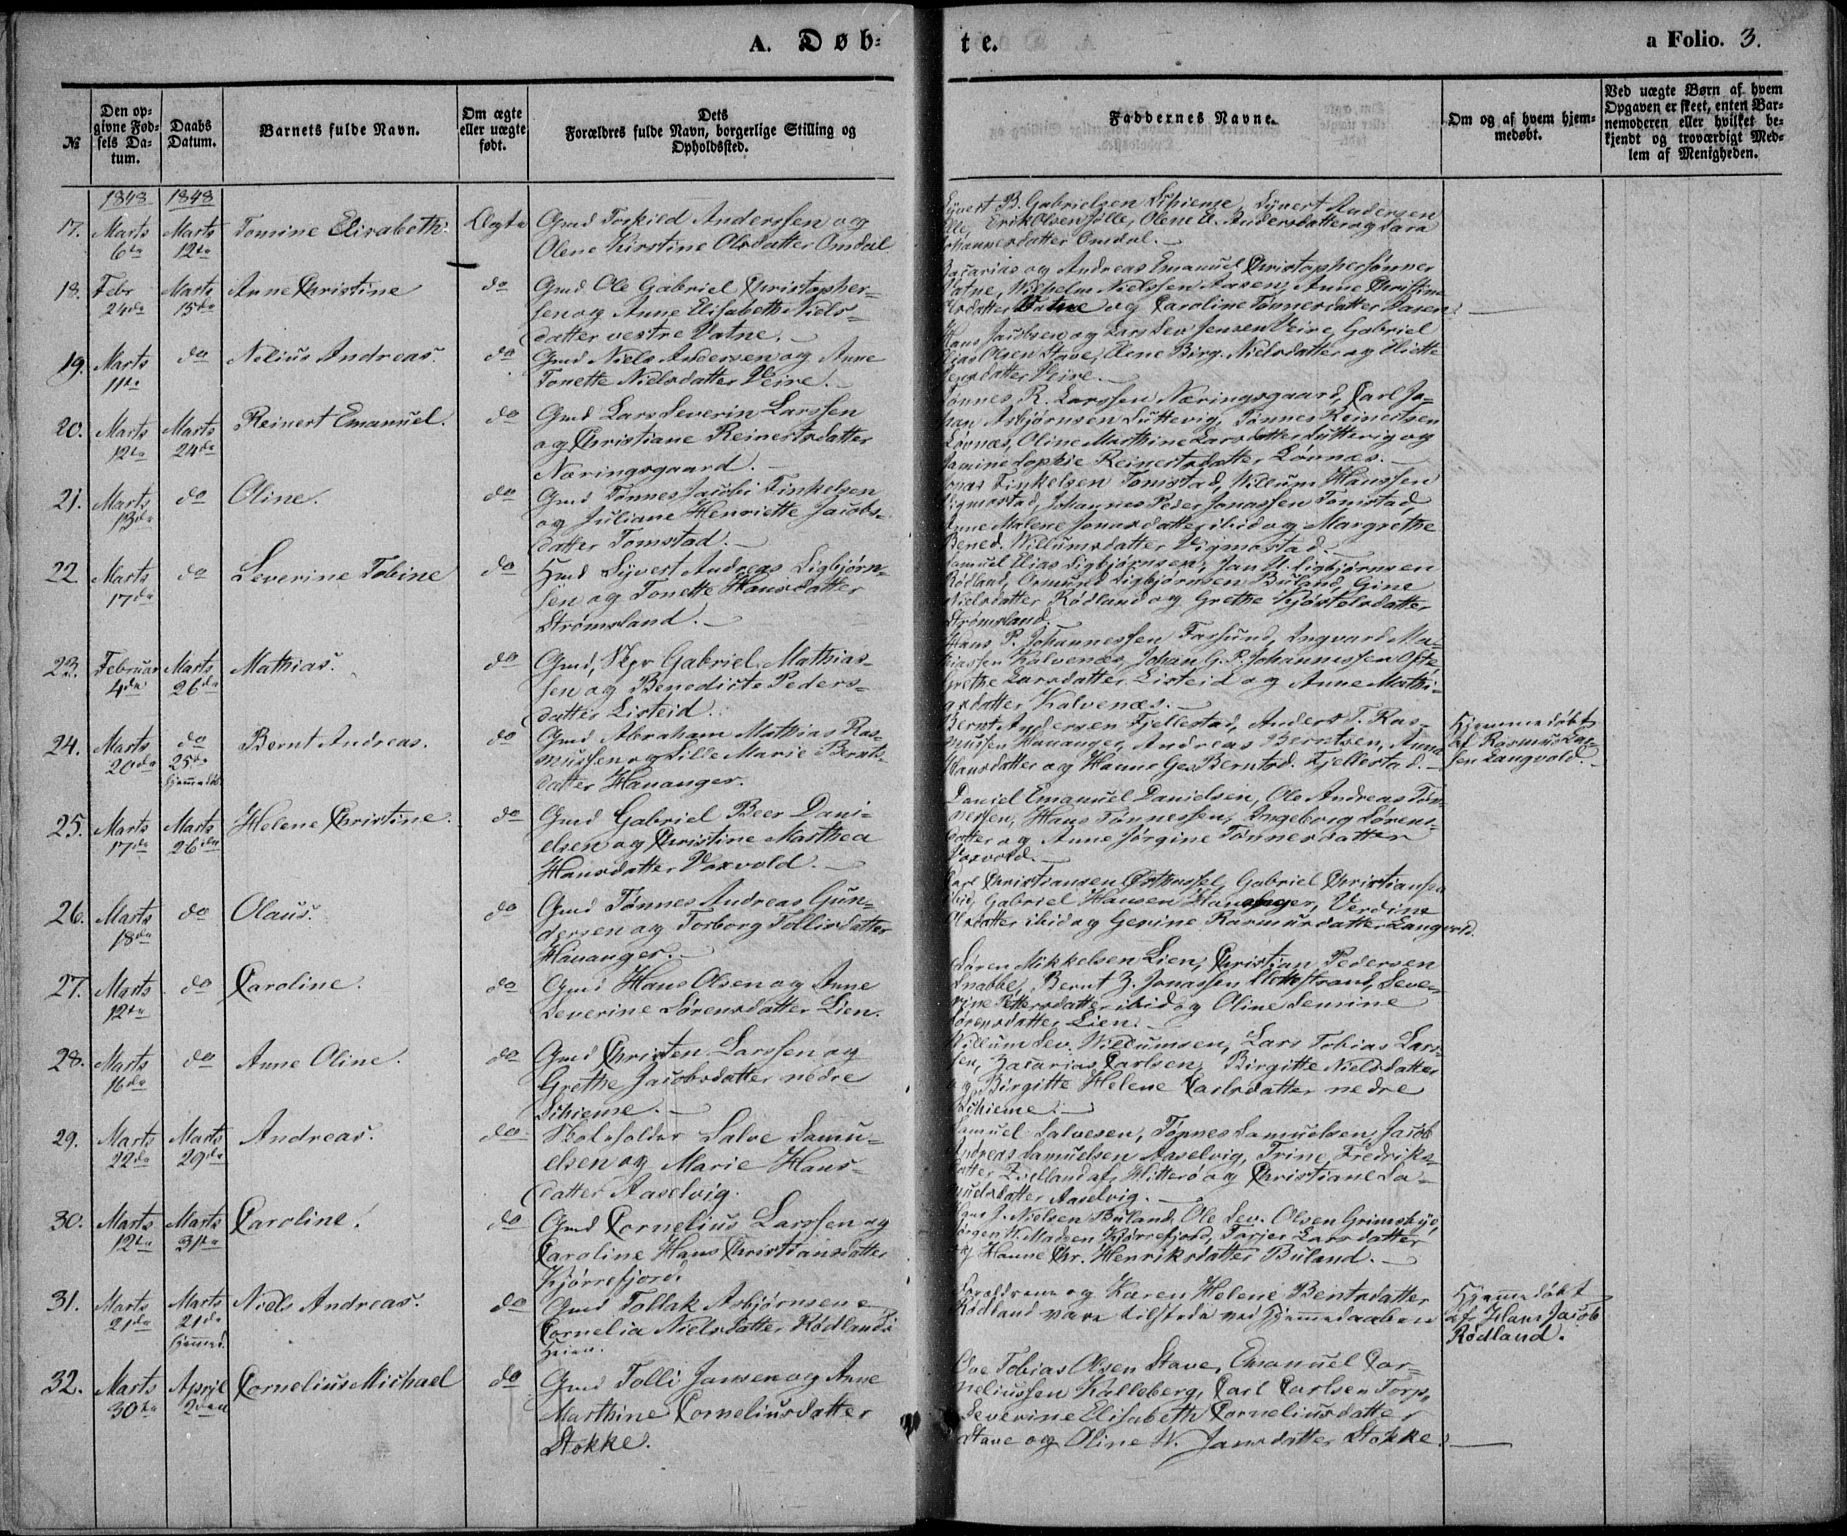 A. Døb-
te.
a Folio. 3.
№
Den op-
givne Fød-
sels Da-
tum.
Daabs
Datum.
Barnets fulde Navn.
Om ægte
eller uægte
født.
Dets
Forældres fulde Navn, borgerlige Stilling og
Opholdssted.
Faddernes Navne.
Om og af hvem hjem-
medøbt.
Ved uægte Børn af hvem
Opgaven er skeet, enten Bar-
nemoderen eller hvilket be-
kjendt og troværdigt Med-
lem af Menigheden.
1848 1848
17. Marts 6te Marts 12te Tomine Elisabeth. Ægte
Gmd Torkild Anderssen og
Olene Kirstine Olsdatter Omdal
B. Gabrielsen Schieme, Sÿvert Andersen
Erik Olsen Jølle, Olene A. Andersdatter og Sara
Johannesdatter Omdal.
18. Febr 24de Marts 15de Anne Christine do
Gmd Ole Gabriel Christopher-
sen og Anne Elisabeth Niels-
datter vestre Vatne.
Zacarias og Andreas Emanuel Christophersønner
Vatne, Wilhelm Nielssen Aasen, Anne Christine
Olsdatter Vatne og Caroline Tønnesdatter Aasen.
19. Marts 11te do Nelius Andreas. do
Gmd Niels Andersen og Anne
Tonette Nielsdatter Veire.
Hans Jacobsen og Lars Sev. Jensen Veire, Gabriel
Elias Olsen Stave, Elene Birg. Nielsdatter og Oliette
datter Veire.
20. Marts 12te Marts 24de Reinert Emanuel. do
Gmd Lars Severin Larssen
og Christiane Reinertsdatter
Næringsgaard.
Tønnes R. Larssen Næringsgaard, Carl Jo-
han Asbjørnsen Luttevig, Tønnes Reinertsen
Løvnæs, Oline Marthine Larsdatter Luttevig og
Jamine Sophie Reinertsdatter Løvnæs.
21. Marts 13de do Oline. do
Gmd Tønnes Jacobi Tinkelsen
og Juliane Henriette Jacobs-
datter Tomstad.
Jonas Tinkelsen Tomstad, Willum Hanssen
Vigmostad, Johannes Peder Jonassen Tomstad,
Anne Malene Jonasdatter ibid og Margrethe
Bened. Willumsdatter Vigmostad.
22 Marts 17de do Severine Tobine do
Hmd Sÿvert Andreas Sigbjørn-
sen og Tonette Hansdatter
Strømsland.
Samuel Elias Sigbjørnsen, Jan A. Sigbjørnsen
Rødland, Osmund Sigbjørnsen Buland, Gine
Nielsdatter Rødland og Grethe Kjøstelsdatter
Strømsland.
23. Februar 4de Marts 26de Mathias. do
Gmd, Skpr Gabriel Mathias-
sen og Benedicte Peders-
datter Listeid.
Hans P. Johannessen Farsund, Ingvard Ma-
thiassen Kalvenæs, Johan G. P. Johannessen Ofte,
Grethe Larsdatter Listeid og Anne Mathi-
asdatter Kalvenæs.
24. Marts 20de do 25de hjemmedøbt Bernt Andreas. do
Gmd Abraham Mathias Ras-
mussen og Sille Marie Bernts-
datter Hananger.
Bernt Andersen Fjellestad, Anders T. Ras-
mussen Hananger, Andreas Berntsen, Anne
Hansdatter og Hanne Ges. Berntsd. Fjellestad.
Hjemmedøbt
af Rasmus Lar-
sen Langvold.
25. Marts 17de Marts 26de Helene Christine. do
Gmd Gabriel Beer Dani-
elsen og Christine Marthea
Hansdatter Vaxvold.
Daniel Emanuel Danielsen, Ole Andreas Tøn-
nessen, Hans Tønnessen, Ingeborg Sørens-
datter og Anne Jørgine Tønnesdatter
Vaxvold.
26. Marts 18de do Olaus. do
Gmd Tønnes Andreas Gun-
dersen og Torborg Tollisdatter
Hananger.
Carl Christiansen Østhassel, Gabriel Christiansen
ibid, Gabriel Hansen Hananger, Verdine
Olsdatter ibid og Gesine Rasmusdatter Langvold.
27. Marts 12te do Caroline. do
Gmd Hans Olsen og Anne
Severine Sørensdatter Lien.
Søren Mikkelsen Lien, Christian Pedersen
Snabbe, Bernt Z. Jonassen Stokstrand, Seve-
rine Pettersdatter ibid og Oline Semine
Sørensdatter Lien.
28. Marts 16de do Anne Oline. do
Gmd Christen Larssen og
Grethe Jacobsdatter nedre
Schieme.
Willum Sev. Willumsen, Lars Tobias Lars-
sen, Zacarias Carlsen, Birgitte Nielsdatter
og Birgitte Helene Carlsdatter nedre
Schieme.
29. Marts 22de Marts 29de Andreas. do
Skoleholder Salve Samu-
elsen og Marie Hans-
datter Aaselvig.
Samuel Salvesen, Tønnes Samuelsen, Jacob
Andreas Samuelsen Aaselvig, Trine Fredriks-
datter Fjelland af Hitterø og Christiane Sa-
muelsdatter Aaselvig.
30. Marts 12te Marts 31te Caroline. do
Gmd Cornelius Larssen og
Caroline Hans Christiansdatter
Kjørrefjord.
Hans J. Nielsen Buland, Ole Sev. Olsen Grimsbye,
Jørgen W. Madsen Kjørrefjord, Tarjer Larsdatter
og Hanne Chr. Henriksdatter Buland.
31. Marts 21de Marts 21de hjemmed. Niels Andreas. do
Gmd Tollak Asbjørnsen &
Cornelia Nielsdatter Rødlands
Heien.
Forældrene og Karen Helene Berntsdatter
Rødland vare tilstede ved Hjemmedaaben
Hjemmedøbt
af Hans Jacob
Rødland.
32. Marts 30te April 2den Cornelius Michael do
Gmd Tolli Jansen og Anne
Marthine Corneliusdatter
Stokke.
Ove Tobias Olsen Stave, Emanuel Cor-
neliussen Kalleberg, Carl Carlsen Torp,
Severine Elisabeth Corneliusdatter
Stave og Oline W. Jansdatter Stokke.